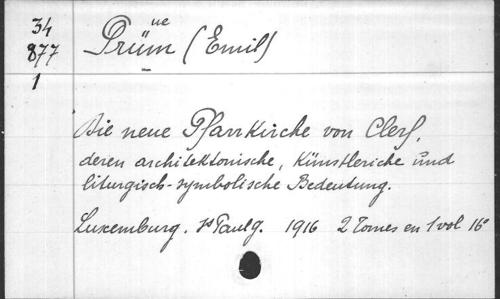 34
877
1
ue
Prüm (Emil)
Die neue Pfarrkirche von Clerf,
deren architektonische, Künstleriche und
liturgisch-symbolische Bedeutung.
Luxemburg. St Paulg. 1916 2 Tomes en 1 vol 16°